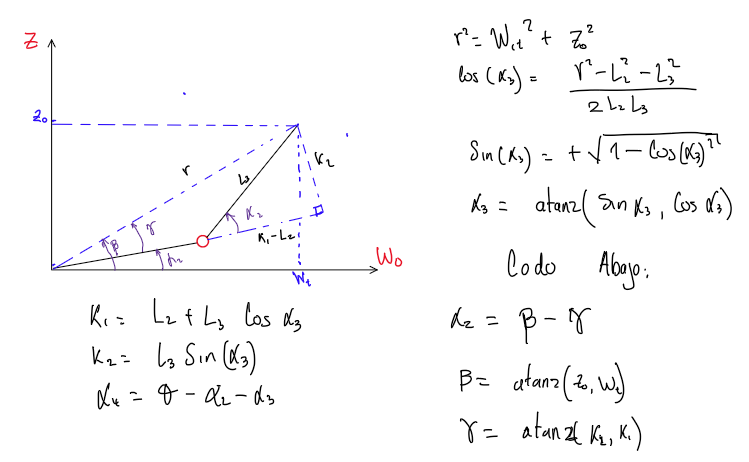 Z
Z₀
r
L₃
K₂
γ
β
α₂
K₁-L₂
W₀
W₁
K₁ = L₂ + L₃ Cos α₃
K₂ = L₃ Sin(α₃)
α₄ = θ - α₂ - α₃
r² = W₁t² + Z₀²
Cos(α₃) = r² - L₂² - L₃² / 2 L₂ L₃
Sin(α₃) = +√(1 - Cos(α₃)²)
α₃ = atan2(Sin α₃, Cos α₃)
Codo Abajo:
α₂ = β - γ
β = atan2(Z₀, Wt)
γ = atan2(K₂, K₁)